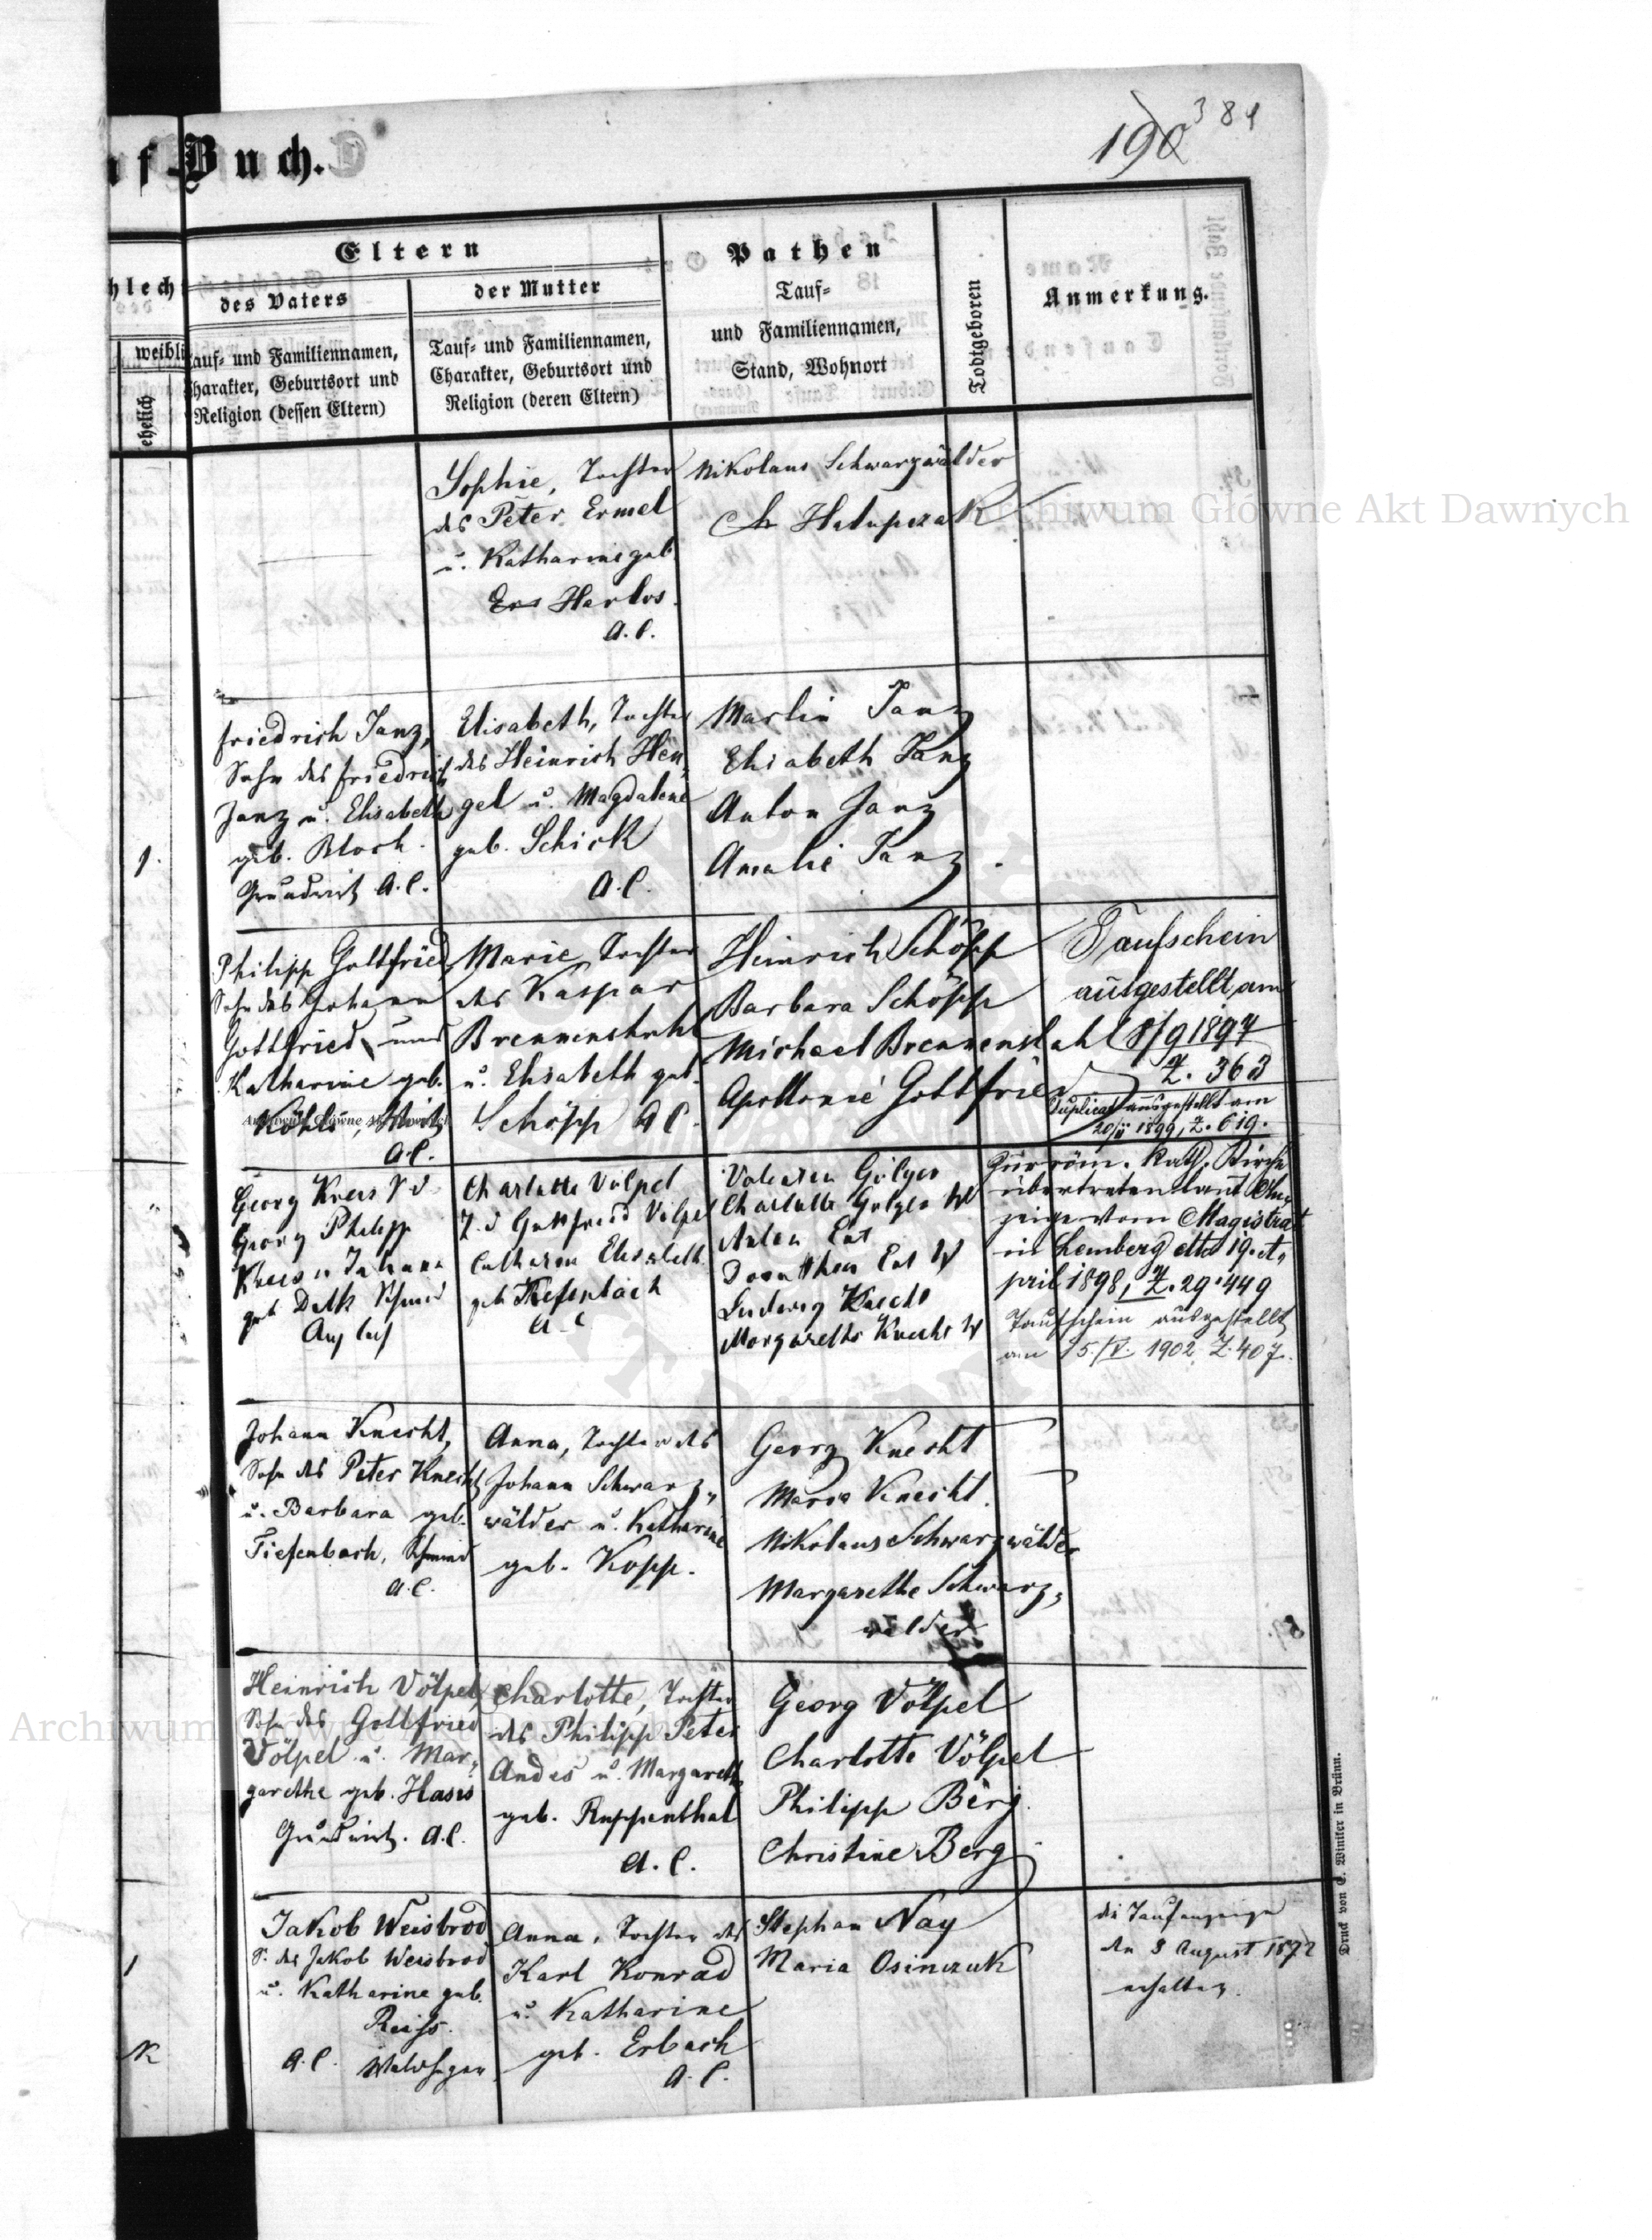 381
190
uf-Buch.
Eltern
Pathen
Todtgeboren
Anmerkung.
hlech
des Vaters
der Mutter
Tauf=
und Familiennamen,
Stand, Wohnort
weibli
ehelich
Tauf= und Familiennamen,
Charakter, Geburtsort und
Religion (dessen Eltern)
Tauf= und Familiennamen,
Charakter, Geburtsort und
Religion (deren Eltern)
Sophie, Tochter
des Peter Ermel
u. Katharine geb.
Harlos.
A.C.
Nikolaus Schwarzwälder
Hatupczak
1.
Friedrich Janz,
Sohn des Friedrich
Janz u. Elisabeth
geb. Bloch.
Grundwirt A.C.
Elisabeth, Tochter
des Heinrich Hen=
gel u. Magdalene
geb. Schick
A.C.
Martin Janz
Elisabeth Janz
Anton Janz
Amalie Janz
Philipp Gottfried,
Sohn des Johann
Gottfried und
Katharine geb.
A.C.
Marie, Tochter
des Kaspar
Brennenstuhl
u. Elisabeth geb.
Schöpp A.C.
Heinrich Schöpp
Barbara Schöpp
Michael Brennenstahl
Apollonie Gottfried
Taufschein
ausgestellt am
18/9 1897
Z. 363
Duplicat ausgestellt am
20/II 1899, Z. 619.
Georg Kreis S d
Georg Philipp
Kreis u Johana
geb
Charlotte Völpel
T. d Gottfried Völpel
Catharin Elisabeth
geb Tiefenbach
A.C
Charlotte
Anton
Dorothea
Ludwig Knecht
Margarethe Knecht W
Zur röm. Kath. Kirche
übertreten laut An=
zeige vom Magistrat
in Lemberg dtto 19. A=
pril 1898, Z. 29.449
Taufschein ausgestellt
am 15./IV. 1902 Z. 407.
Johann Knecht,
Sohn des Peter Knecht
u. Barbara geb.
Tiefenbach, Schmied
A.C.
Anna, Tochter des
Johann Schwarz=
wälder u. Katharine
geb. Kopp.
Georg Knecht
Maria Knecht.
Nikolaus Schwarzwälder
Margarethe Schwarz=
wälder
Heinrich Völpel,
Sohn des Gottfried
Völpel u. Mar=
garethe geb. Hasis
Grundwirt. A.C.
Charlotte, Tochter
des Philipp Peter
Andes u. Margareth
geb. Ruppenthal
A.C.
Georg Völpel
Charlotte Völpel
Philipp Berg.
Christine Berg
1
Jakob Weisbrod
S. des Jakob Weisbrod
u. Katharine geb.
Reiss.
A.C.
Anna, Tochter des
Karl Konrad
u. Katharine
geb. Erbach
A.C.
Stephan Nay
Maria Osinczuk
die Taufanzeige
den 3 August 1872
erhalten.
Druck von C. Winiker in Brünn.
Archiwum Główne Akt Dawnych
Archiwum Główne Akt Dawnych